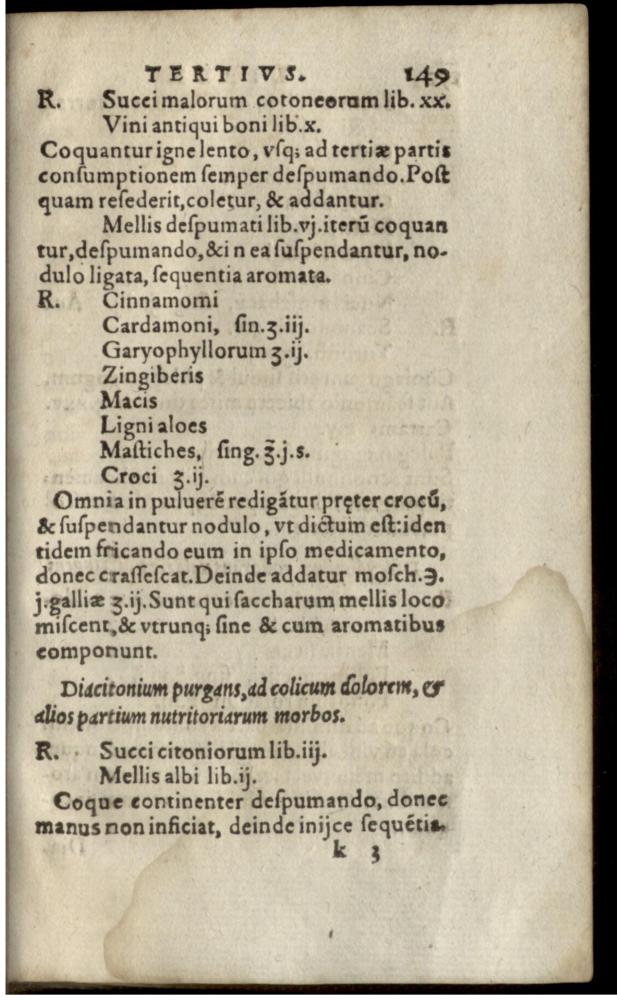 TERTIVS. 149
R. Succi malorum cotoneorum lib. xx.
Vini antiqui boni lib.x.
Coquantur igne lento, vſq; ad tertiæ partis
conſumptionem ſemper deſpumando. Poſt
quam reſederit, coletur, & addantur.
Mellis deſpumati lib.vj. iterũ coquan
tur, deſpumando, & in ea ſuſpendantur, no-
dulo ligata, ſequentia aromata.
R. Cinnamomi
Cardamoni, ſin.ʒ.iij.
Garyophyllorum ʒ.ij.
Zingiberis
Macis
Ligni aloes
Maſtiches, ſing. ʒ̃.j.s.
Croci ʒ.ij.
Omnia in puluerẽ redigãtur pręter crocũ,
& ſuſpendantur nodulo, vt dictum eſt: iden
tidem fricando eum in ipſo medicamento,
donec craſſeſcat. Deinde addatur moſch.℈.
j. galliæ ʒ.ij. Sunt qui ſaccharum mellis loco
miſcent, & vtrunq; ſine & cum aromatibus
componunt.
Diacitonium purgans, ad colicum dolorem, &
alios partium nutritoriarum morbos.
R. Succi citoniorum lib.iij.
Mellis albi lib.ij.
Coque continenter deſpumando, donec
manus non inficiat, deinde inijce ſequẽtia.
k 3